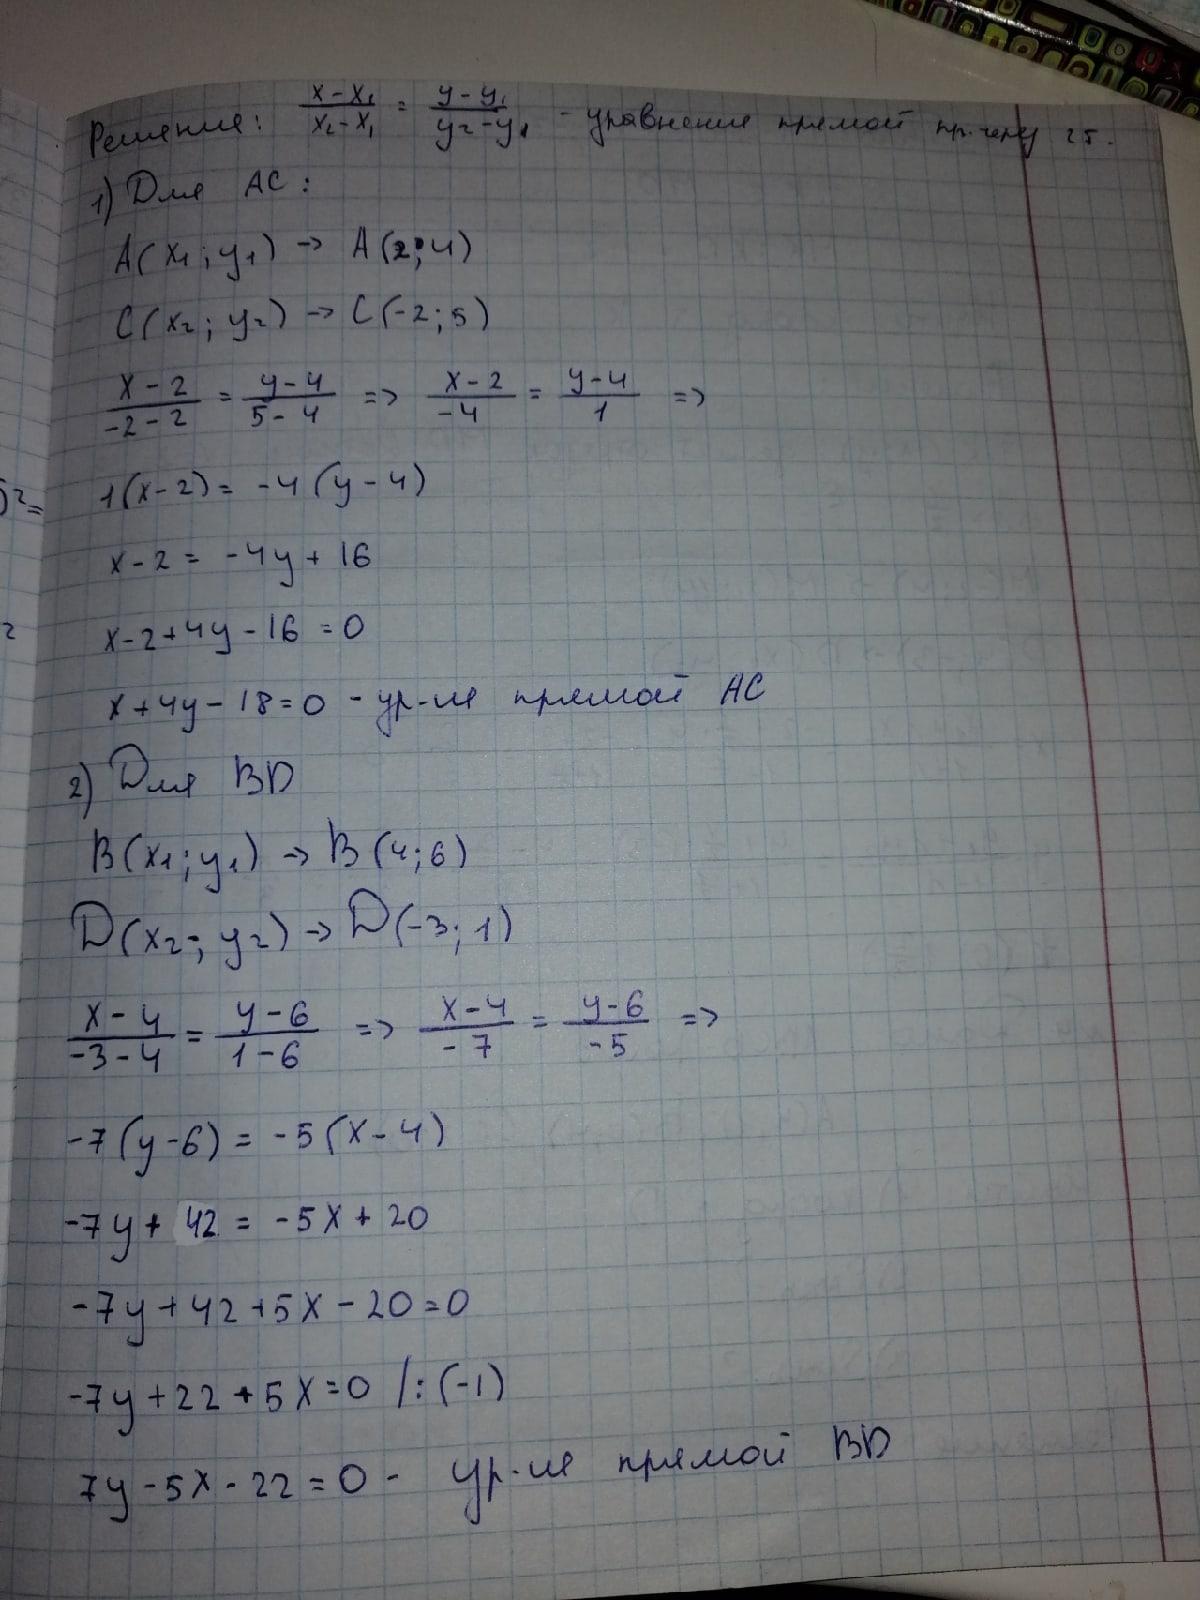 Решение: (x-x₁)/(x₂-x₁) = (y-y₁)/(y₂-y₁) - уравнение прямой пр. через 2т.
1) Для AC:
A(x₁;y₁) → A(2;4)
C(x₂;y₂) → C(-2;5)
(x-2)/(-2-2) = (y-4)/(5-4) => (x-2)/(-4) = (y-4)/1 =>
1(x-2) = -4(y-4)
x-2 = -4y+16
x-2+4y-16=0
x+4y-18=0 - ур-ие прямой AC
2) Для BD
B(x₁;y₁) → B(4;6)
D(x₂;y₂) → D(-3;1)
(x-4)/(-3-4) = (y-6)/(1-6) => (x-4)/(-7) = (y-6)/(-5) =>
-7(y-6) = -5(x-4)
-7y+42 = -5x+20
-7y+42+5x-20=0
-7y+22+5x=0 /:(-1)
7y-5x-22=0 - ур-ие прямой BD